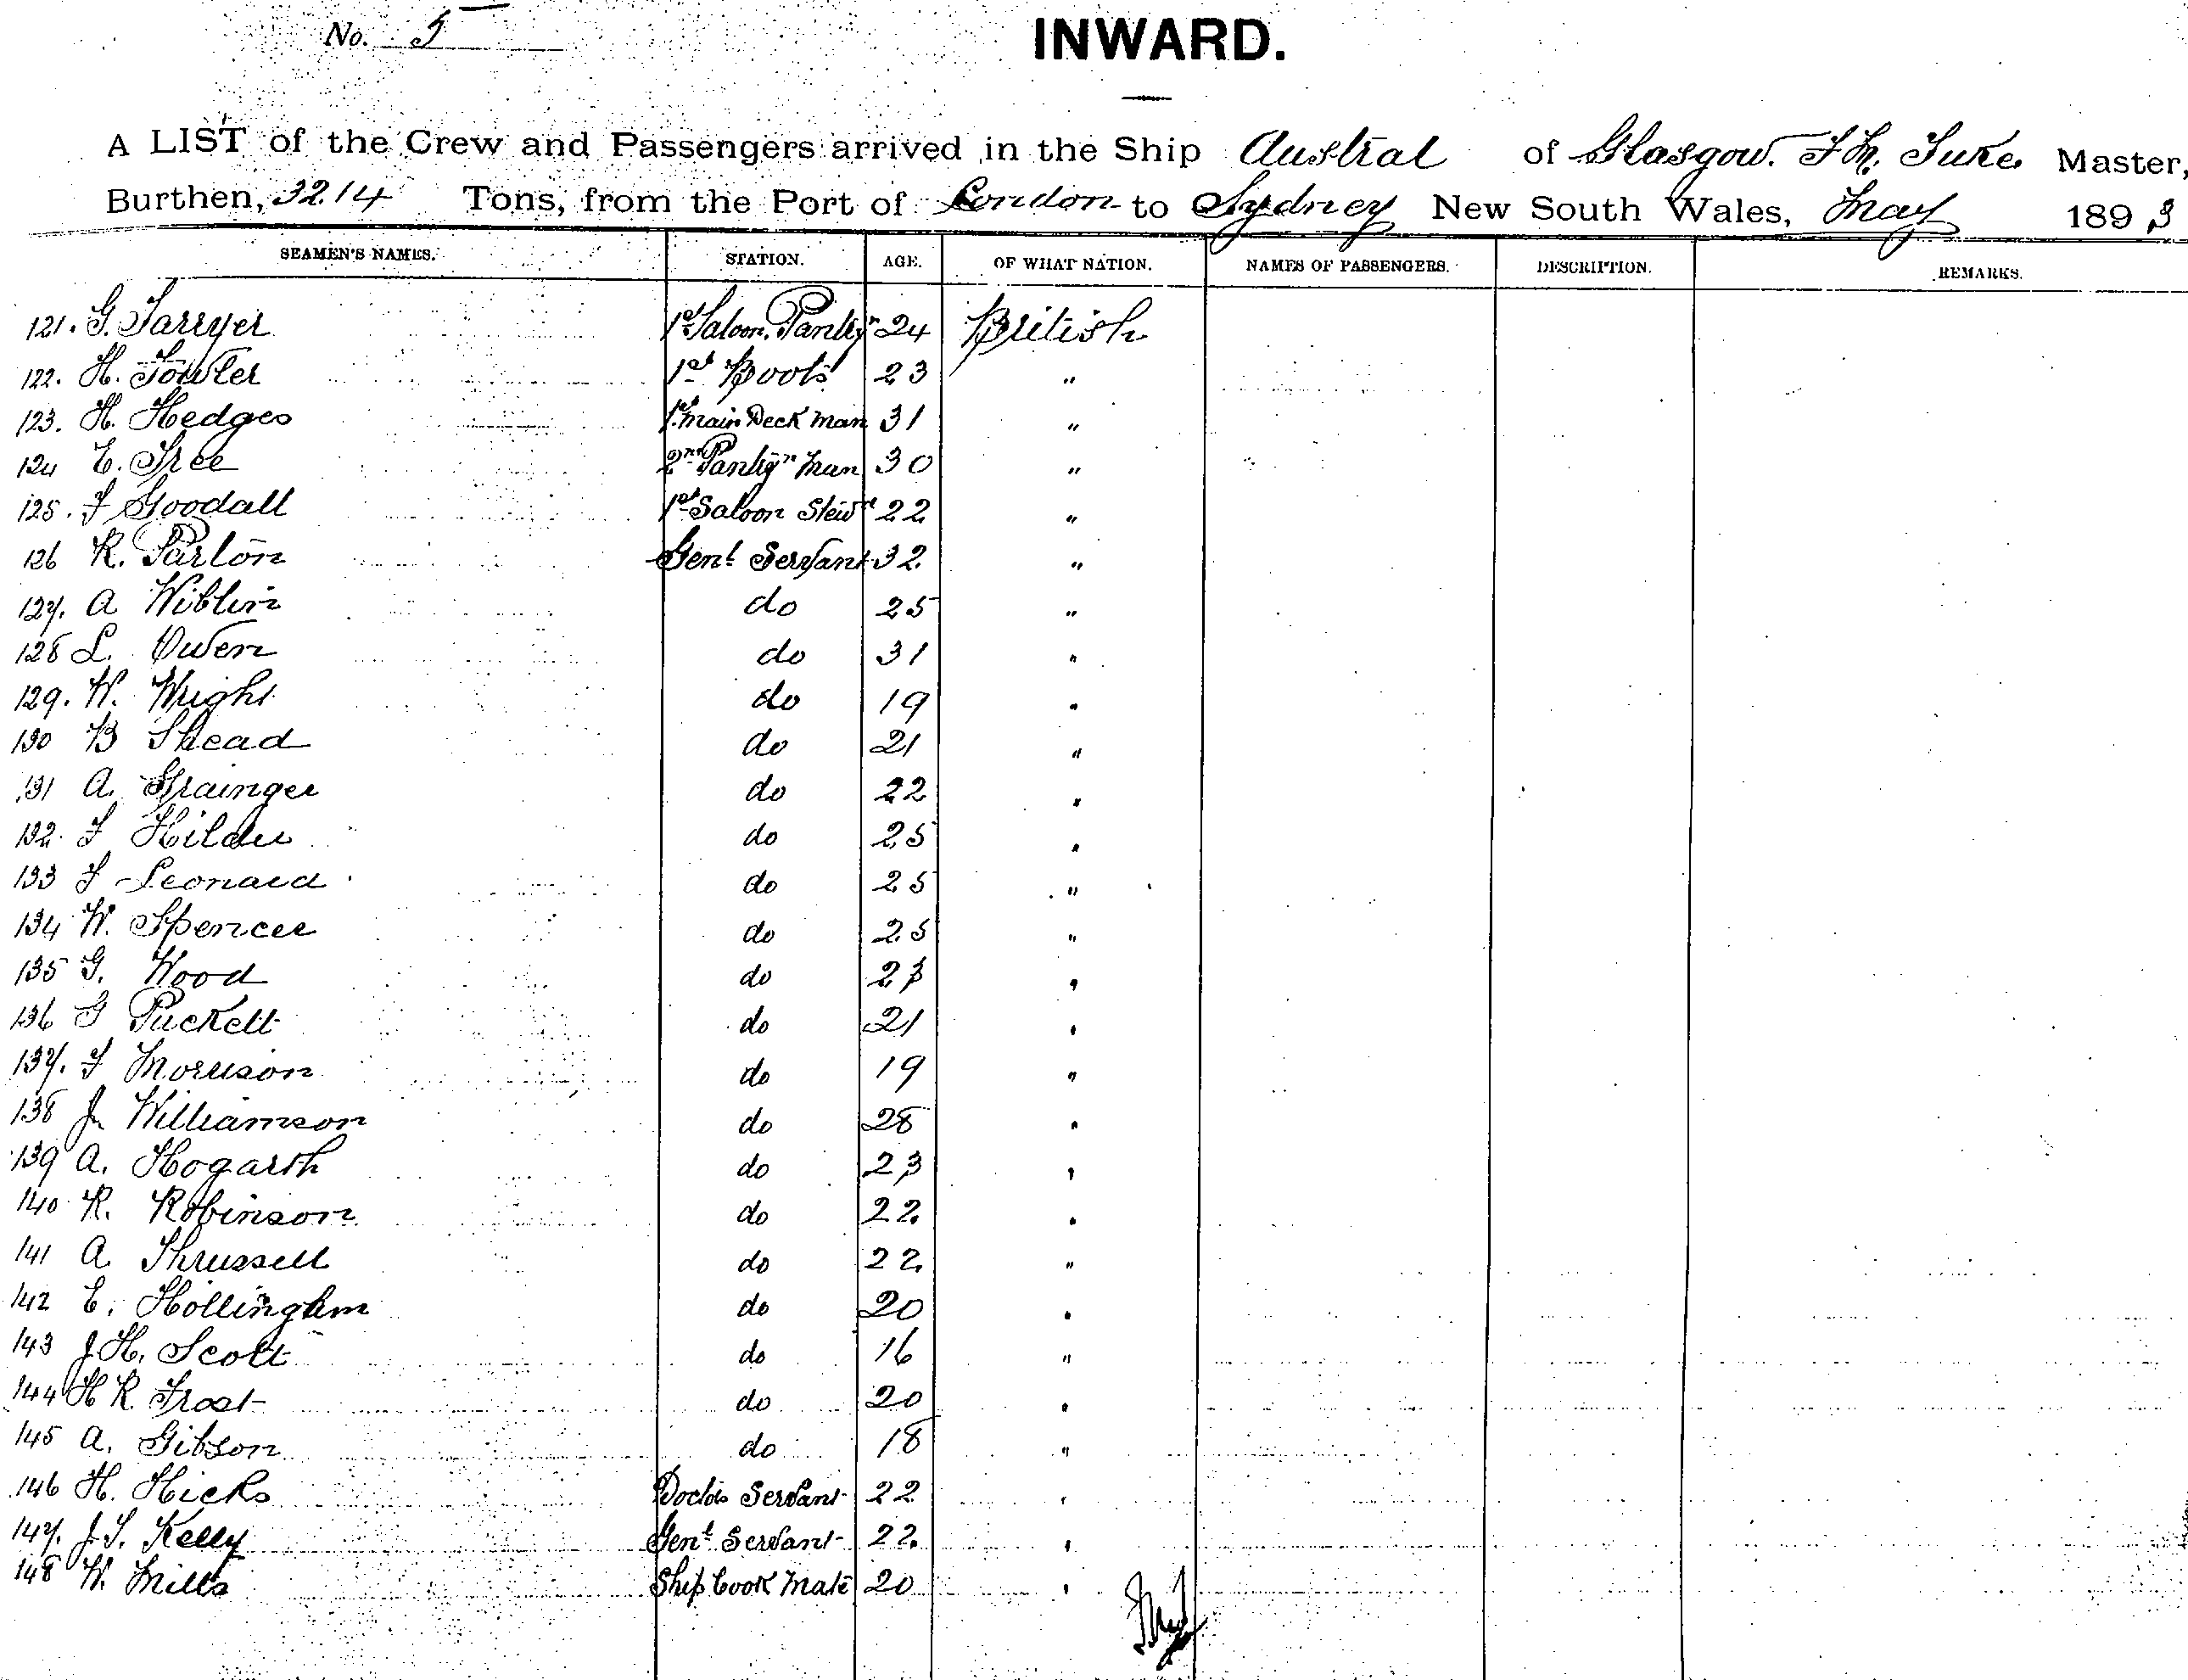 No. 5
INWARD.
A LIST of the Crew and Passengers arrived in the Ship Austral of Glasgow. Master,
Burthen, 3214 Tons, from the Port of London to Sydney New South Wales, May 1893
SEAMEN'S NAMES. STATION. AGE. OF WHAT NATION. NAMES OF PASSENGERS. DESCRIPTION. REMARKS.
121. G. 1st Saloon Pantry 24 British
122. H. Fowler 1st Boots 23 "
123. H. Hedges 1st Main Deck Man 31 "
124 E. 2nd Man 30 "
125. F Goodall 1st Saloon Stewd 22 "
126 R. Genl Servant 32 "
127. A Wiblin do 25 "
128 L. Owen do 31 "
129. W. Wright do 19 "
130 B Shead do 21 "
131 A. Grainger do 22 "
132. F Hilder do 25 "
133 F Leonard do 25 "
134 W. Spencer do 25 "
135 G. Wood do 23 "
136 G Puckett do 21 "
137. F Morrison do 19 "
138 J. Williamson do 28 "
139 A. Hogarth do 23 "
140 R. Robinson do 22 "
141 A. Thrussell do 22 "
142 E. do 20 "
143 J.H. Scott do 16 "
144 H R. Frost do 20 "
145 A. Gibson do 18 "
146 H. Hicks Servant 22 "
147. Kelly Genl Servant 22 "
148 W. Mills Ship Cook Mate 20 "